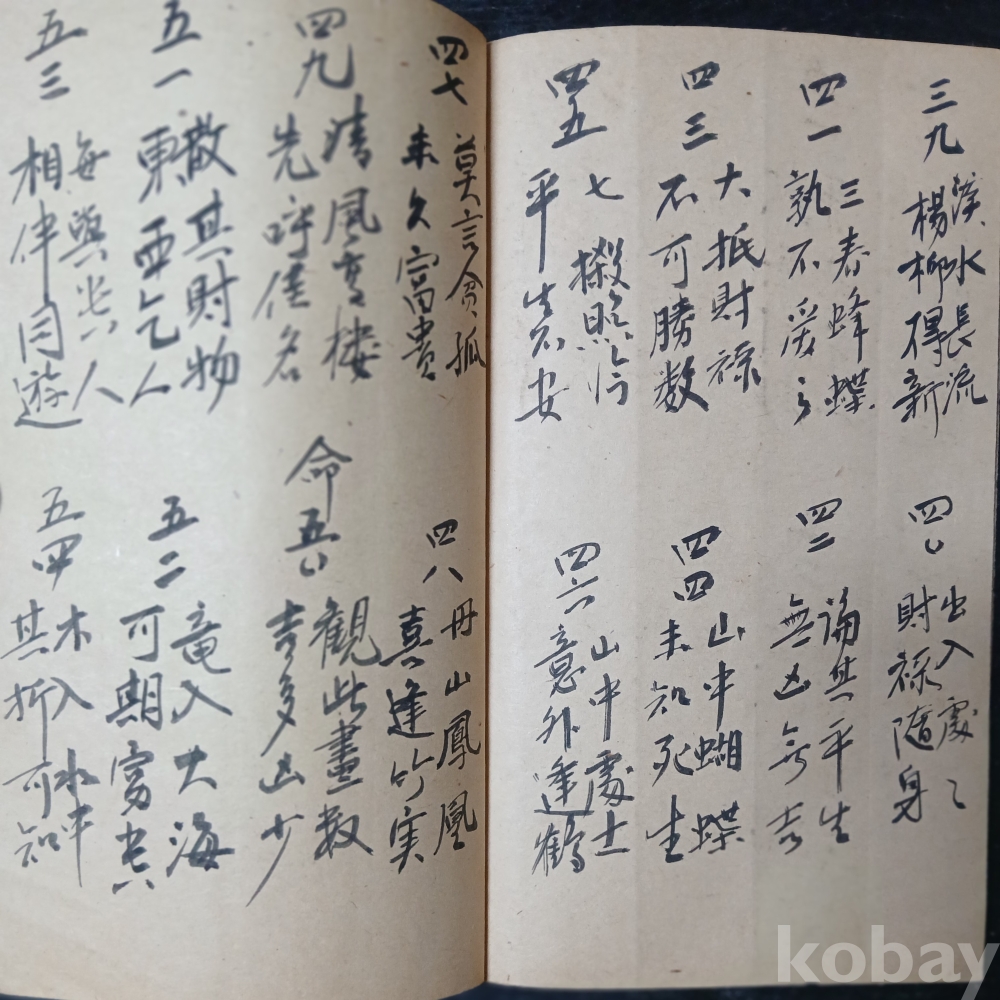 三九
漢水長流
楊柳得新
四〇
出入處〻
財祿隨身
四一
三春蜂蝶
孰不爰之
四二
論其平生
無凶無吉
四三
大抵財祿
不可勝数
四四
山中蝴蝶
未知死生
四五
七殺照臨
平生不安
四六
山中處士
意外逢鶴
四七
莫言貧孤
未久富貴
四八
丹山鳳凰
喜逢竹実
四九
清風高樓
先呼佳名
命
五〇
觀此畫数
吉多凶少
五一
散其財物
東西乞人
五二
竜入大海
可期富貴
五三
每與貴人
相伴同遊
五四
木入水中
其折可知
kobay